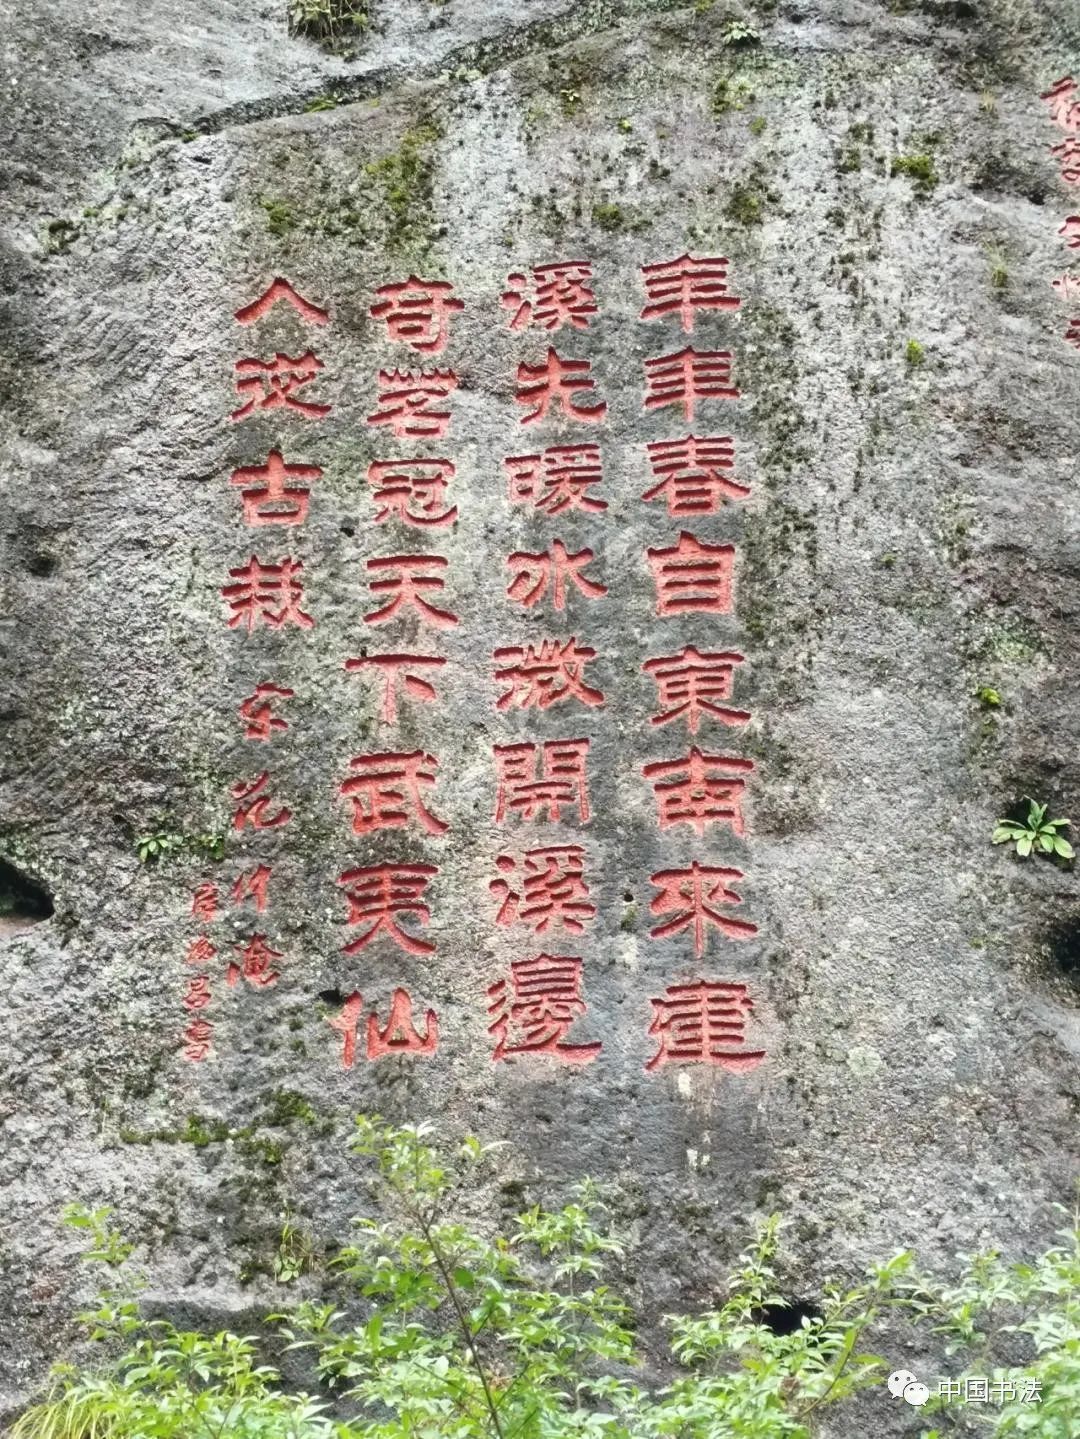 年年春自東南來建
溪先暖水微開溪邊
奇茗冠天下武夷仙
人從古栽 范仲淹
中国书法